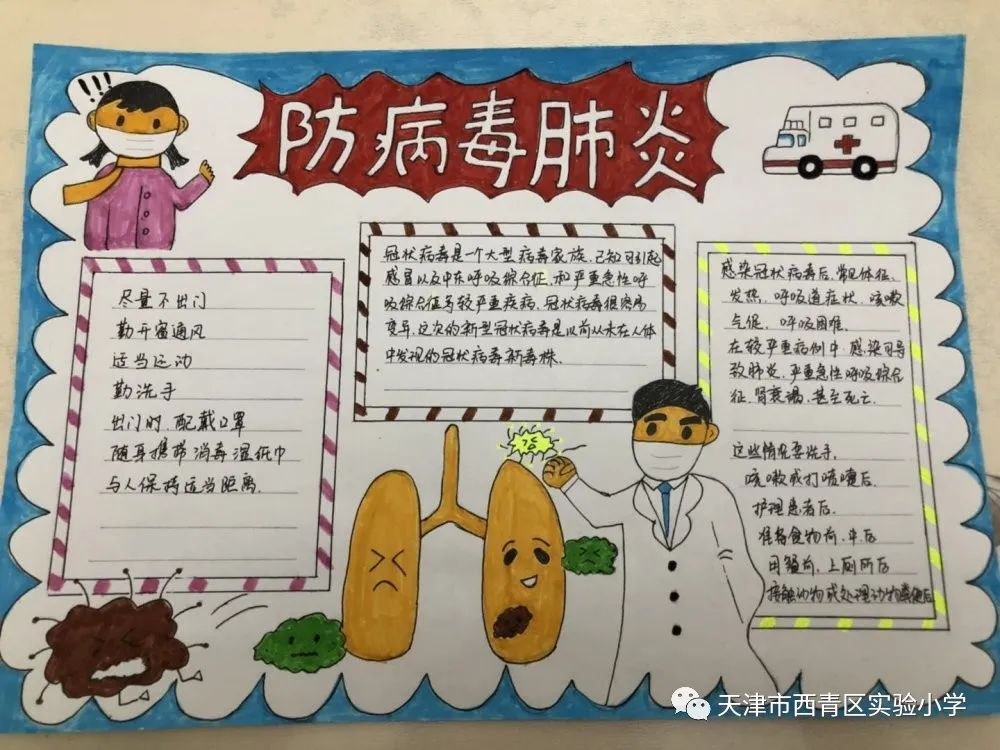 防病毒肺炎
尽量不出门
勤开窗通风
适当运动
勤洗手
出门时,配戴口罩
随身携带消毒湿纸巾
与人保持适当距离.
冠状病毒是一个大型病毒家族,已知可引起
感冒以及中东呼吸综合征.和严重急性呼
吸综合征等较严重疾病.冠状病毒很容易
变异,这次的新型冠状病毒是以前从未在人体
中发现的冠状病毒新毒株.
感染冠状病毒后,常见体征,
发热,呼吸道症状,咳嗽
气促,呼吸困难.
在较严重病例中,感染可导
致肺炎,严重急性呼吸综合
征.肾衰竭,甚至死亡.
这些情况要洗手,
咳嗽或打喷嚏后.
护理患者后.
准备食物前、中、后
用餐前,上厕所后
接触动物或处理动物粪便后
天津市西青区实验小学